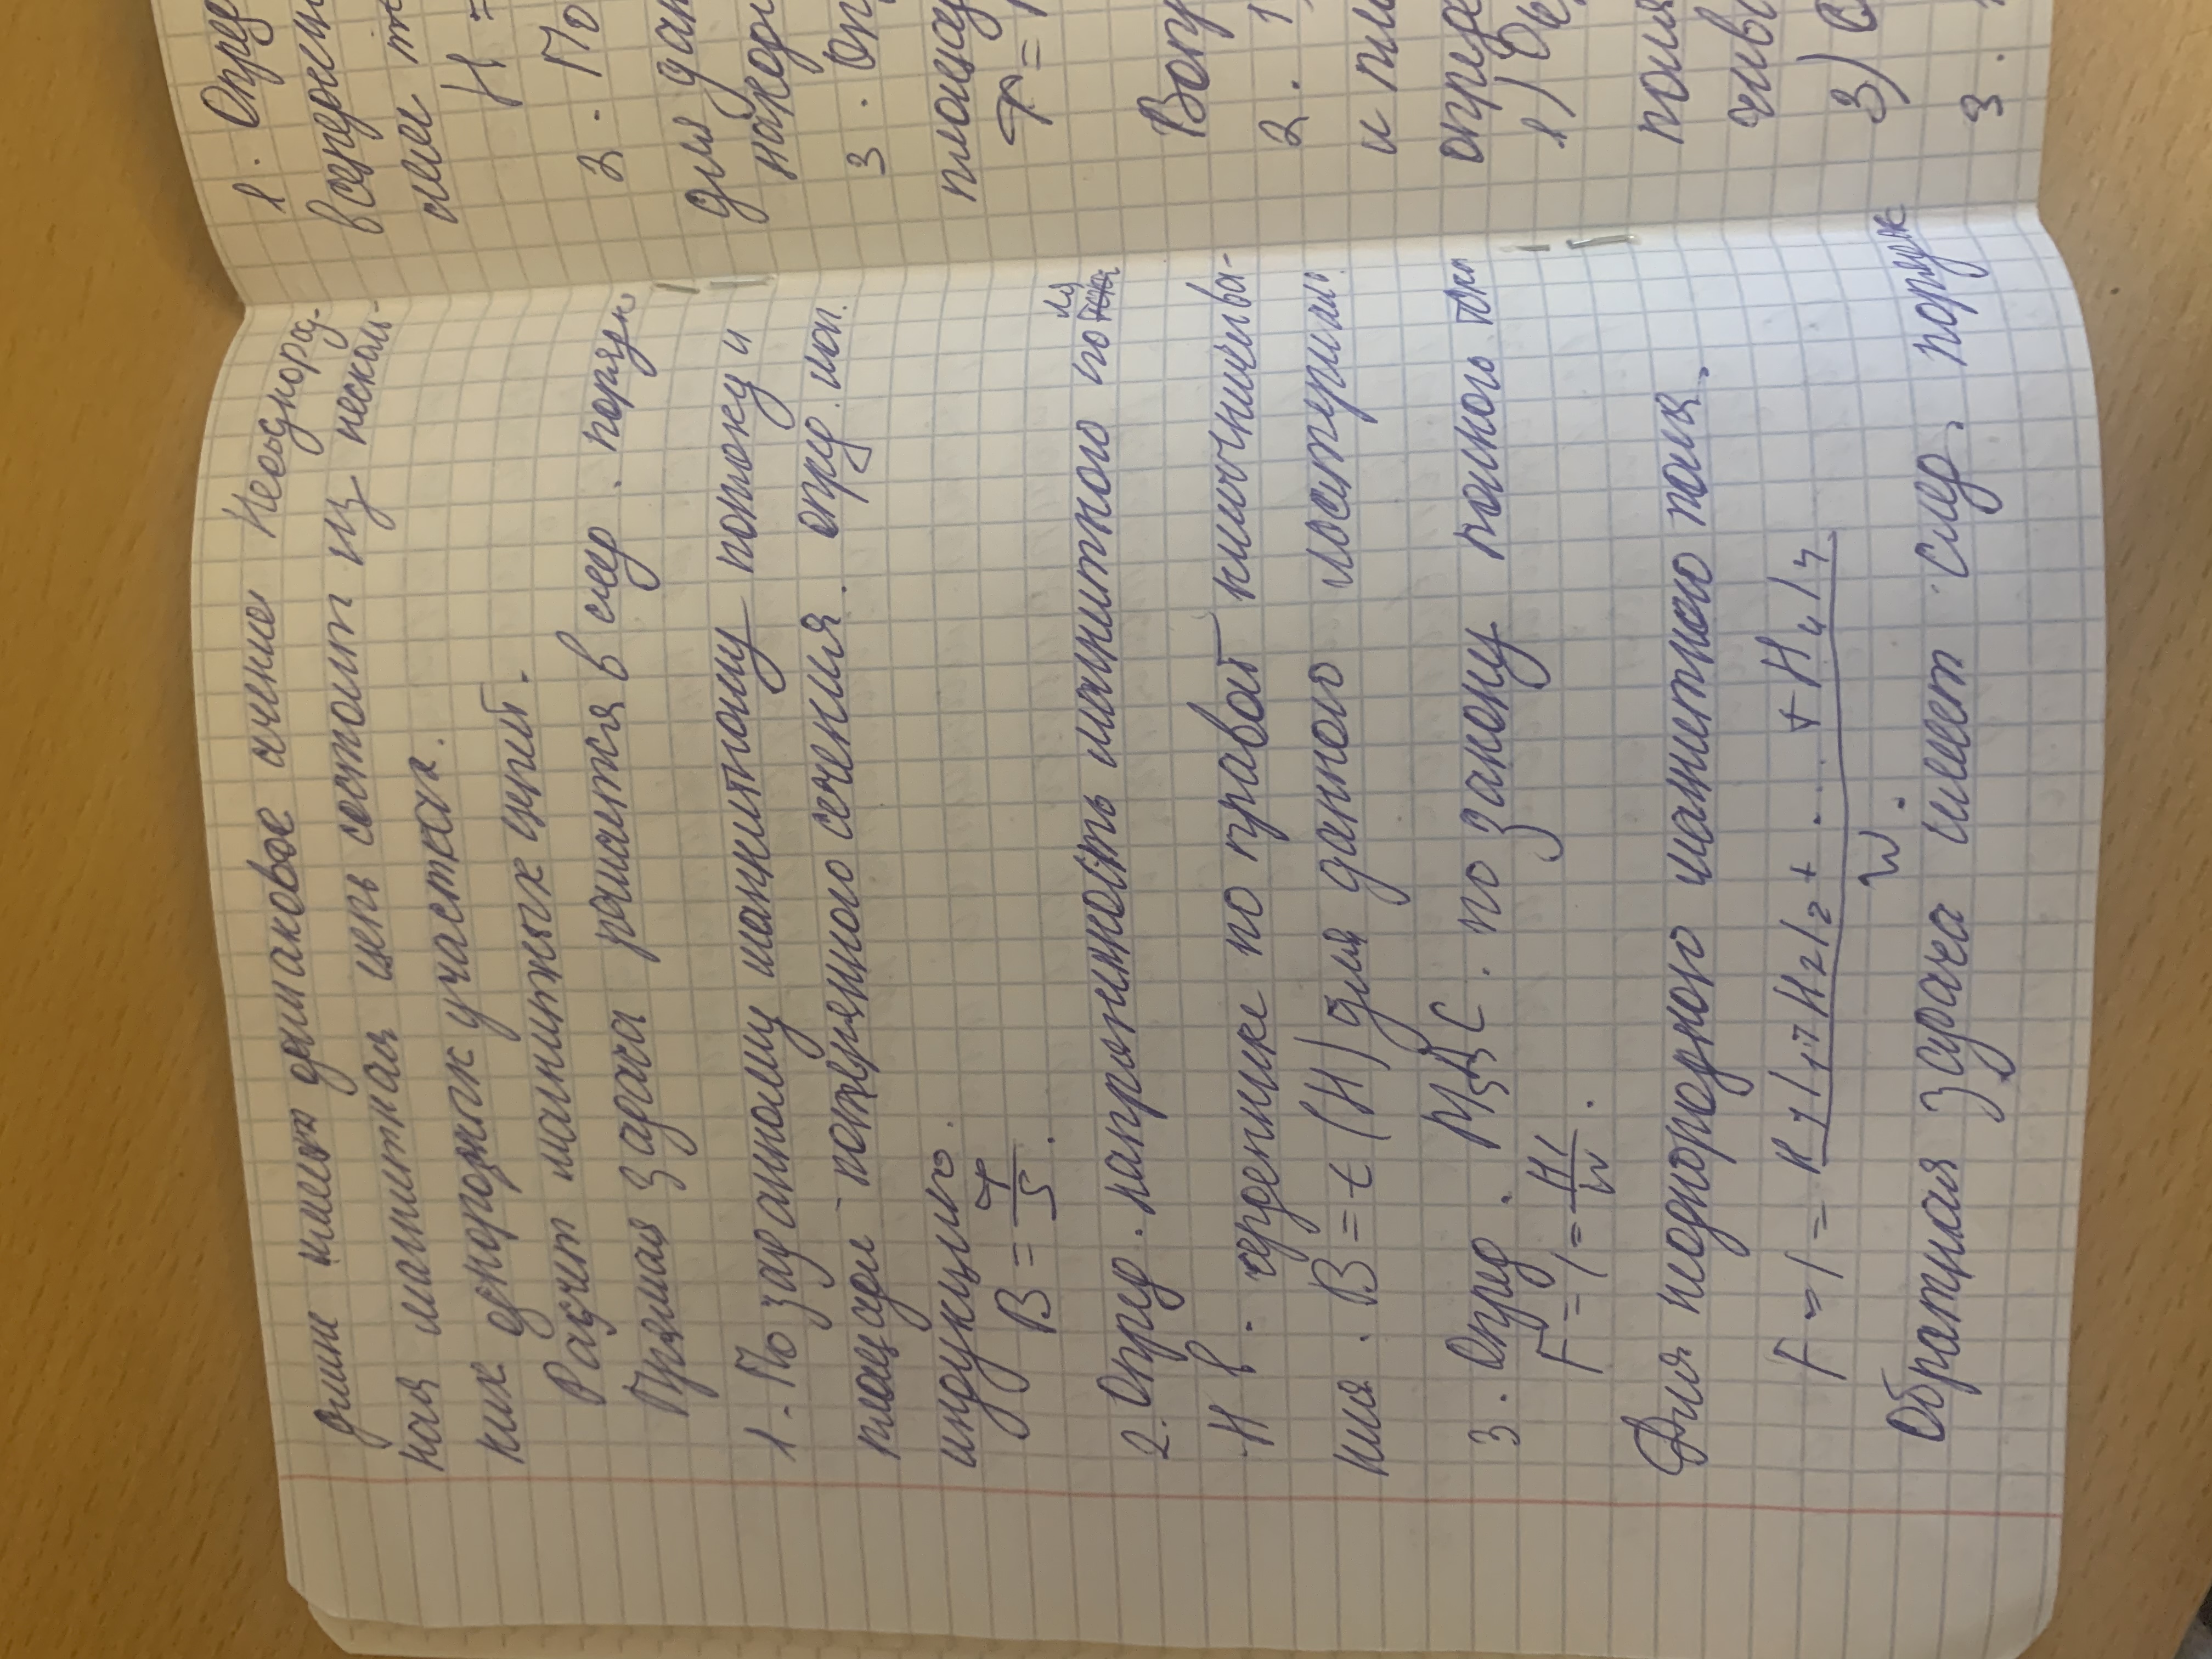 длине имеет одинаковое сечение Неоднород-
ная магнитная цепь состоит из несколь-
ких однородных участках.
Расчет магнитных цепей.
Прямая задача решается в след. порядк
1. По заданному магнитному потоку и
площади поперечного сечения. опред. маг.
индукцию.
B = Ф/S.
2. Опред. напряжимность магнитного поля
H в. сердечнике по правой намагничива-
ния. B = t (H) для данного материал.
3. Опред. МДС. по закону полного тока
F = I = Hl/W.
Для неоднородного магнитного поля.
F = I = H1l1+H2l2+...+H4l4/W.
Обратная задача имеет след. порядк
1. Опред
в сердечн
сле т
H =
2. По
для дан
находи
3. Опр
площад
Ф =
Вопр
2. 1
и пл
опреде
1) Де
поля
чива
3) О
3.